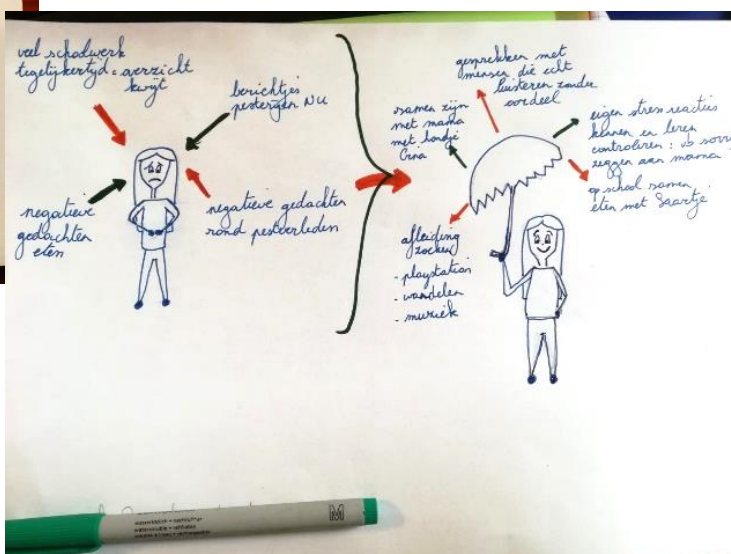 veel schoolwerk
tegelijkertijd = overzicht
kwijt
berichtjes
pesterijen NU
negatieve
gedachten
eten
negatieve gedachten
rond pestverleden
gesprekken met
mensen die echt
luisteren zonder
oordeel
samen zijn
met mama
met hondje
eigen stress reacties
kennen en leren
controleren:
sorry
zeggen aan mama
op school samen
eten met Saartje
afleiding
zoeken
- playstation
- wandelen
- muziek
M